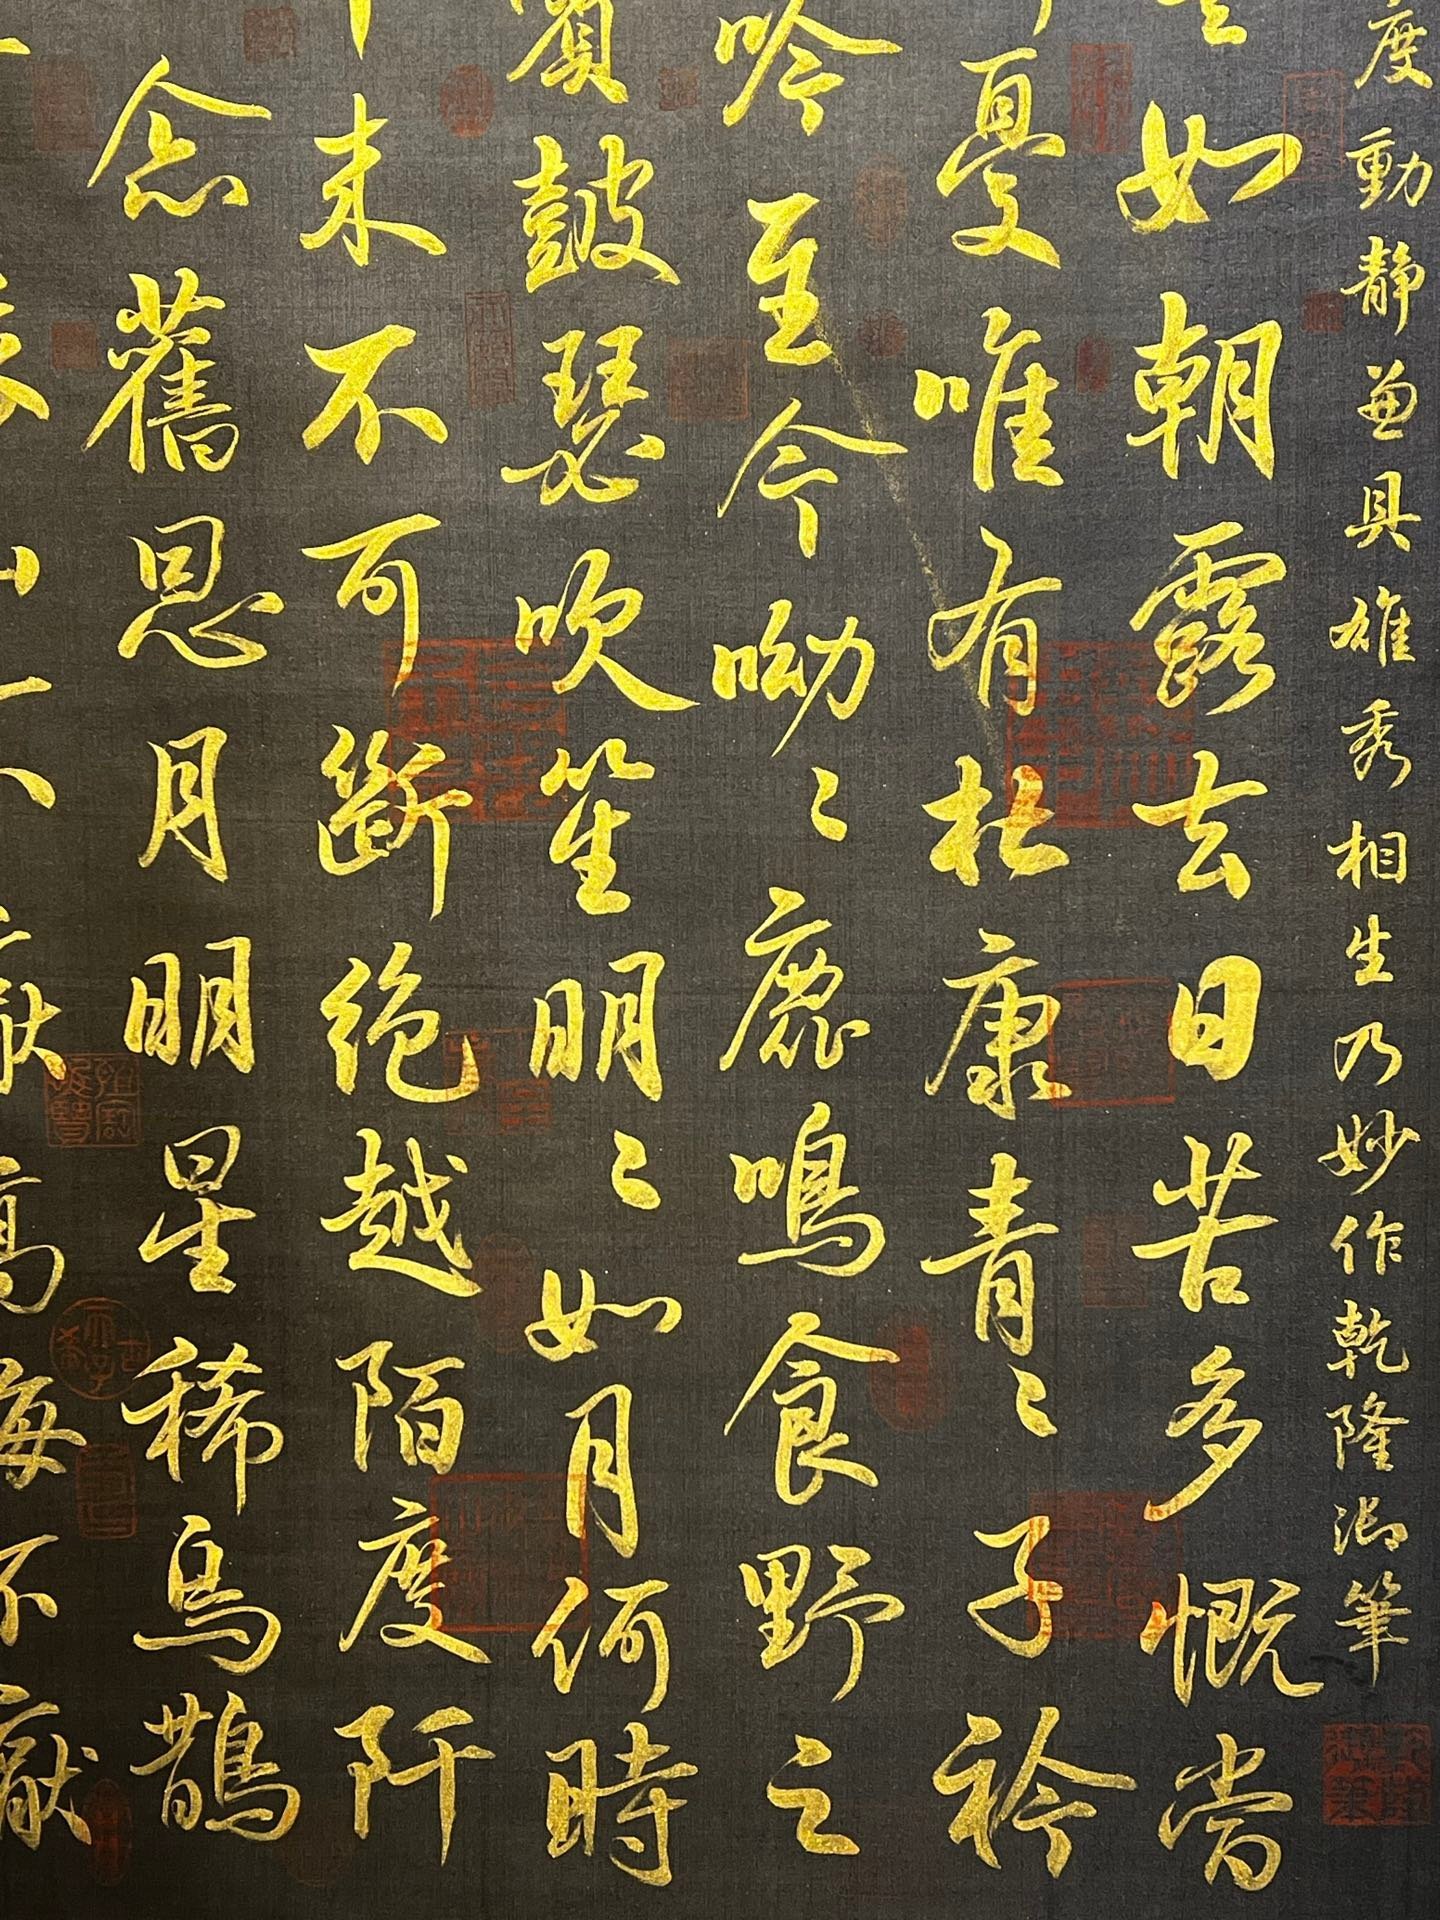 度動靜兼具雄秀相生乃妙作乾隆御筆
如朝露去日苦多慨當
憂唯有杜康青〻子衿
吟至今呦〻鹿鳴食野之
賓鼓瑟吹笙明〻如月何時
來不可斷絶越陌度阡
念舊恩月明星稀烏鵲
猒高海不猒